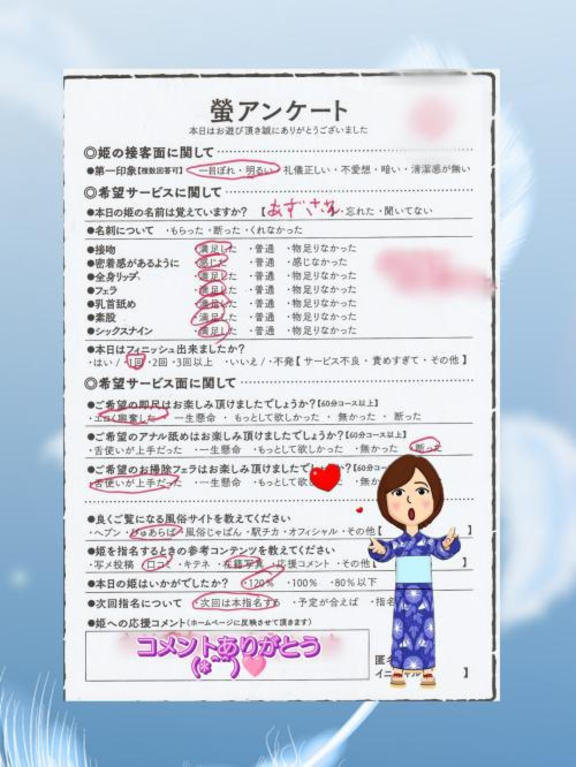 螢アンケート
本日はお遊び頂き誠にありがとうございました
◎姫の接客面に関して
●第一印象【複数回答可】 一目ぼれ・明るい・礼儀正しい・不愛想・暗い・清潔感が無い
◎希望サービスに関して
●本日の姫の名前は覚えていますか? 【あずさ ・忘れた・聞いてない
●名刺について ・もらった・断った・くれなかった
●接吻 ・満足した ・普通 ・物足りなかった
●密着感があるように ・感じた ・普通 ・感じなかった
●全身リップ ・満足した ・普通 ・物足りなかった
●フェラ ・満足した ・普通 ・物足りなかった
●乳首舐め ・満足した ・普通 ・物足りなかった
●素股 ・満足した ・普通 ・物足りなかった
●シックスナイン ・満足した ・普通 ・物足りなかった
●本日はフィニッシュ出来ましたか?
・はい / ・1回・2回・3回以上 ・いいえ / ・不発【サービス不良・責めすぎて・その他】
◎希望サービス面に関して
●ご希望の即尺はお楽しみ頂けましたでしょうか?【60分コース以上】
・エロく興奮した ・一生懸命 ・もっとして欲しかった ・無かった ・断った
●ご希望のアナル舐めはお楽しみ頂けましたでしょうか?【60分コース以上】
・舌使いが上手だった ・一生懸命 ・もっとして欲しかった ・無かった ・断った
●ご希望のお掃除フェラはお楽しみ頂けましたで か?【60分コー
・舌使いが上手だった ・一生懸命 ・もっとして欲しかった ・無か
●良くご覧になる風俗サイトを教えてください
・ヘブン・ぴゅあらば・風俗じゃぱん・駅チカ・オフィシャル・その他【 】
●姫を指名するときの参考コンテンツを教えてください
・写メ投稿・口コミ・キテネ・在籍写真・応援コメント・その他【 】
●本日の姫はいかがでしたか? ・120% ・100% ・80%以下
●次回指名について ・次回は本指名する ・予定が合えば ・指名
●姫への応援コメント(ホームページに反映させて頂きます)
コメントありがとう
匿名
イニ ャル 】